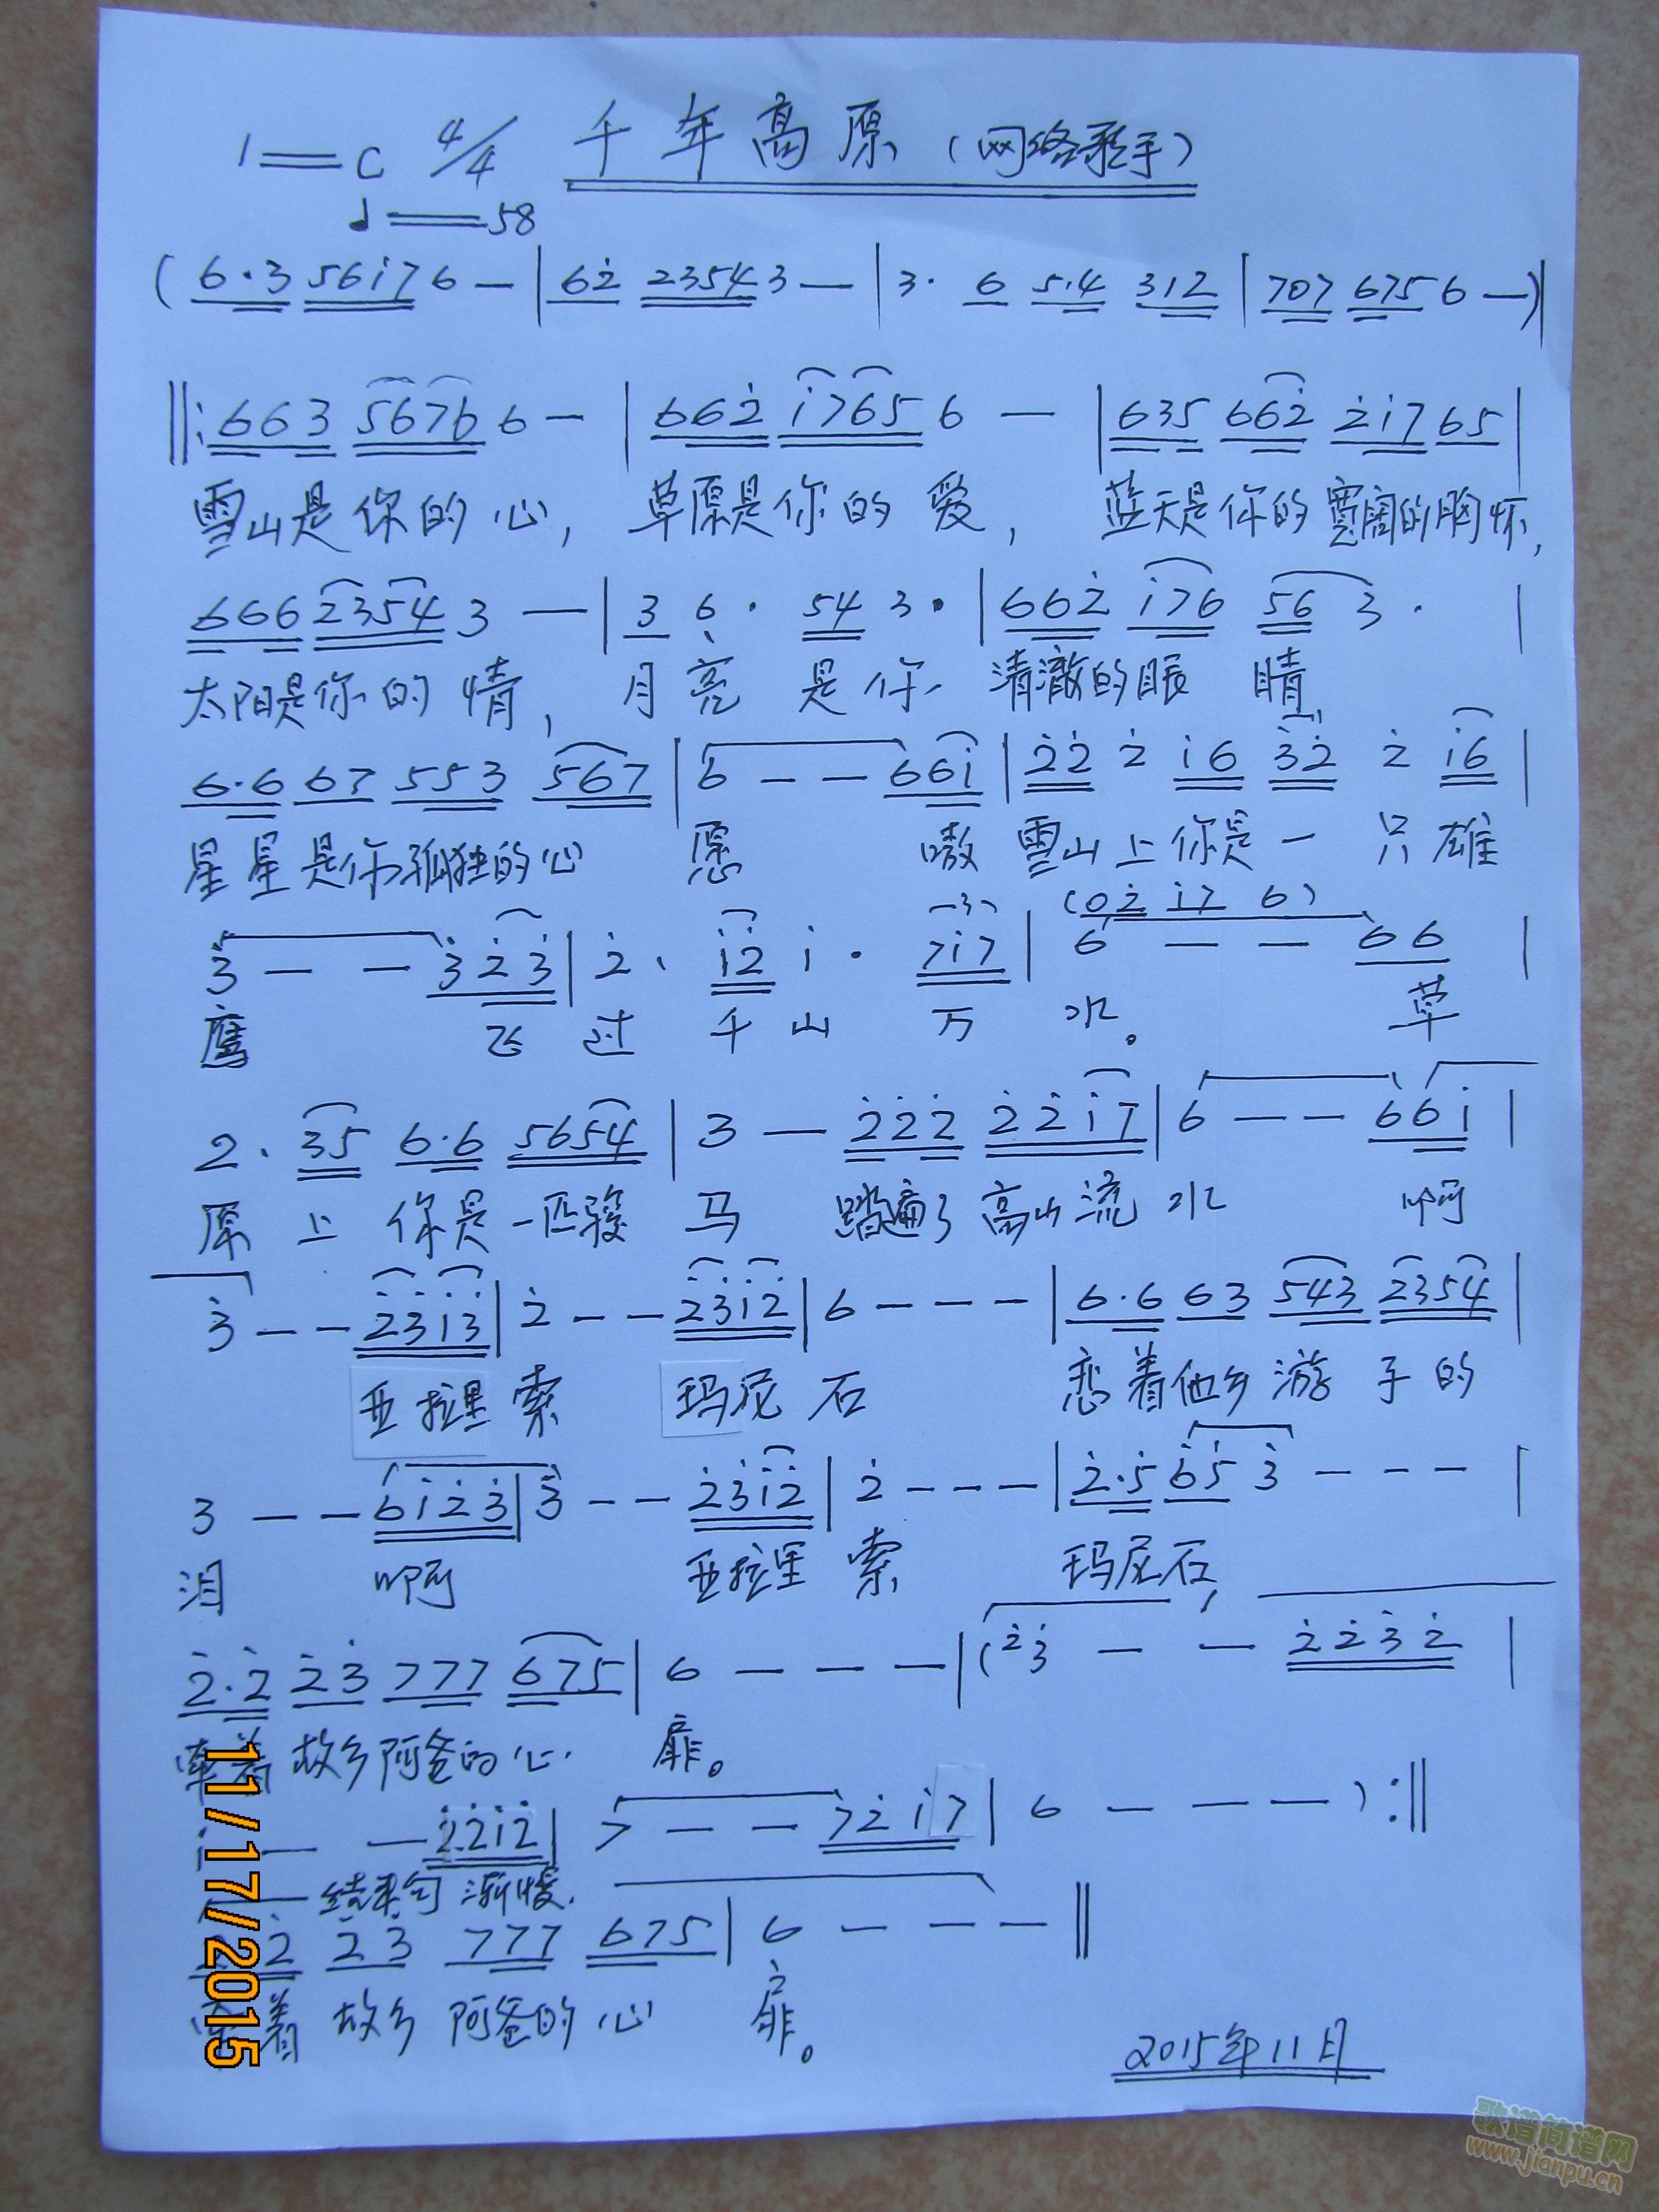 1=C 4/4 千年高原(网络歌手)
♩=58
(6·3 56i7 6 — | 62 2354 3 — | 3· 6 5·4 312 | 707 675 6 —)|
||: 663 5676 6 — | 662 i765 6 — | 635 662 2i7 65 |
雪山是你的心, 草原是你的爱, 蓝天是你的宽阔的胸怀,
666 2354 3 — | 3 6· 54 3· | 662 i76 56 3· |
太阳是你的情, 月亮是你 清澈的眼睛
6·6 67 553 567 | 6 — — 66i | 22 2 i6 32 2 i6 |
星星是你孤独的心 愿 嗷 雪山上你是一只雄
(02 i7 6)
3 — — 323 | 2· i2 i· 7i7 | 6 — — 66 |
鹰 飞过千山万水。 草
2· 35 6·6 5654 | 3 — 222 22i7 | 6 — — 66i |
原上你是一匹骏马 踏遍了高山流水 啊
3 — — 23i3 | 2 — — 23i2 | 6 — — — | 6·6 63 543 2354 |
亚拉里索 玛尼石 恋着他乡游子的
3 — — 6i23 | 3 — — 23i2 | 2 — — — | 2·5 65 3 — — — |
泪 啊 亚拉里索 玛尼石,
2·2 23 777 675 | 6 — — — | (23 — — 2232 |
牵着故乡阿爸的心 扉。
i — — 22i2 | 7 — — 72i7 | 6 — — —) :||
结束句 渐慢.
2 23 777 675 | 6 — — — ||
牵着故乡阿爸的心 扉。
2015年11月
11/17/2015
歌谱简谱网
www.jianpu.cn